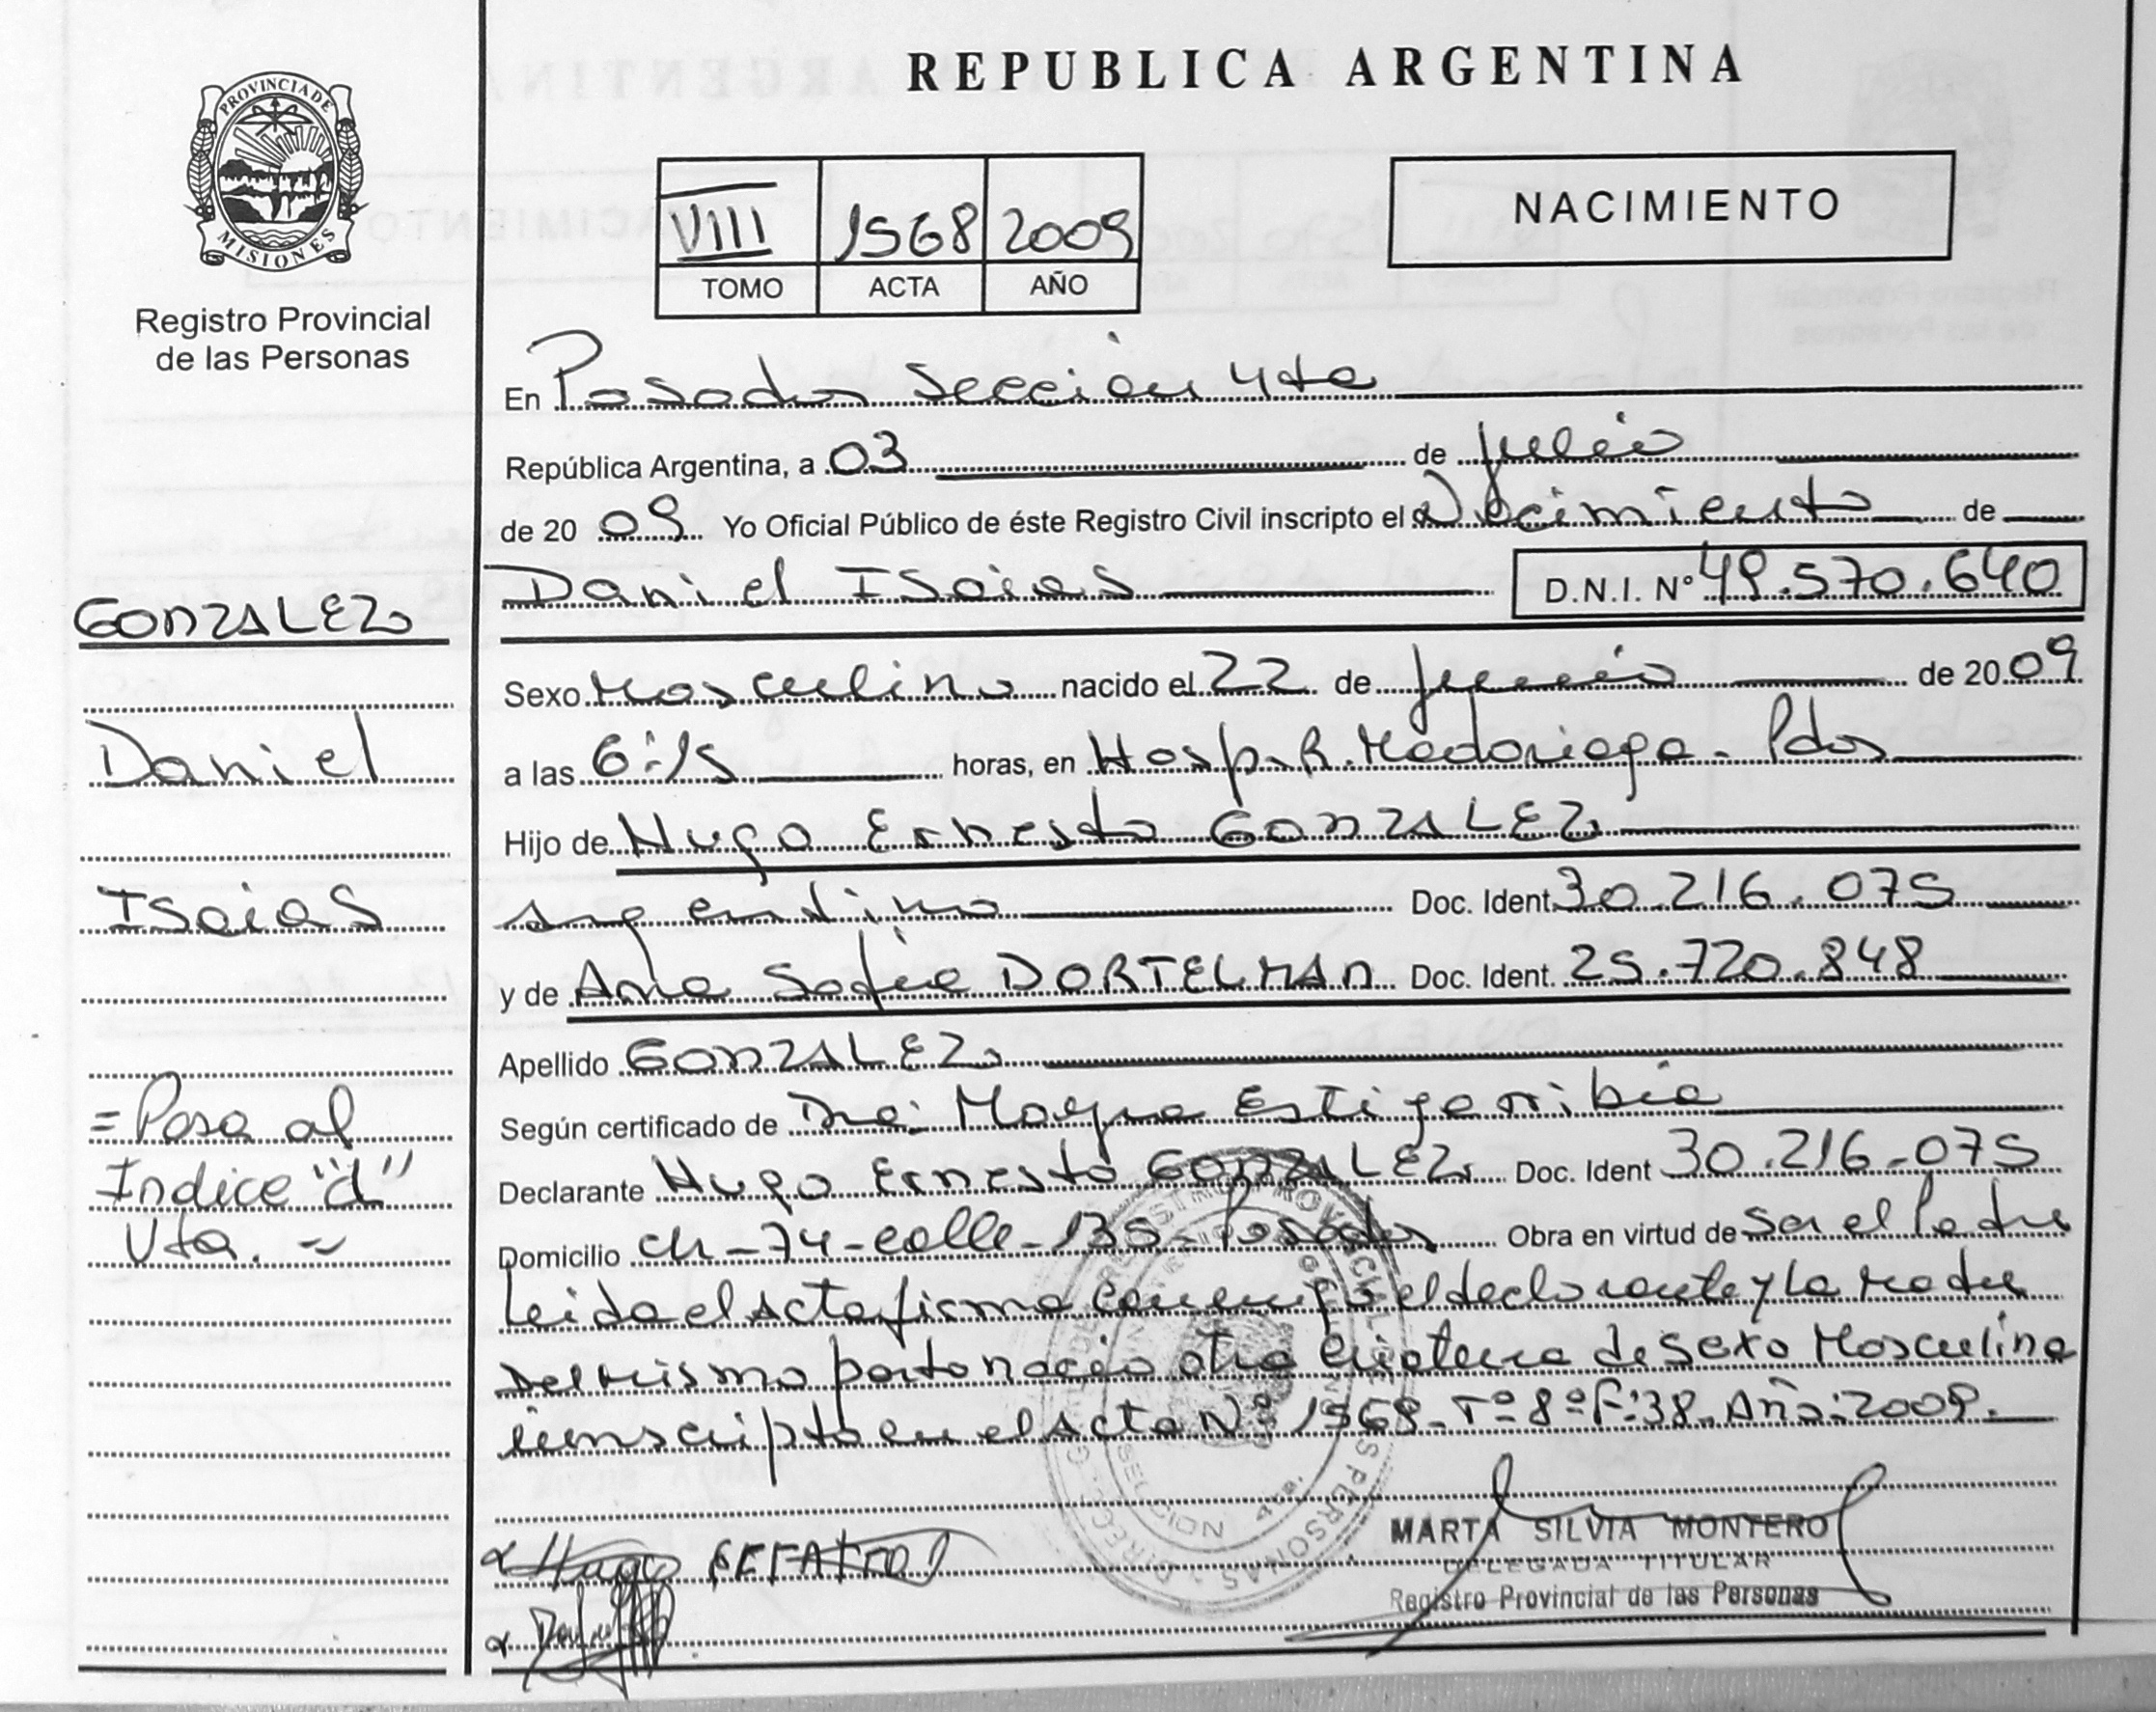 REPUBLICA ARGENTINA
PROVINCIA DE MISIONES
Registro Provincial
de las Personas
VIII 1568 2009
TOMO ACTA AÑO
NACIMIENTO
En Posadas Sección 4ta
República Argentina, a 03 de julio
de 20 09 Yo Oficial Público de éste Registro Civil inscripto el Nacimiento de
Daniel Isaias D.N.I. Nº 49.570.640
GONZALEZ
Daniel
Isaias
=Pasa al
Indice "d"
Vta. =
Sexo Masculino nacido el 22 de junio de 20 09
a las 6:15 horas, en Hosp. R. Madariaga - Pdas
Hijo de Hugo Ernesto GONZALEZ
argentino Doc. Ident. 30.216.075
y de Ana Sofia DORTELMAN Doc. Ident. 25.720.848
Apellido GONZALEZ
Según certificado de Dra: Mayra Estigarribia
Declarante Hugo Ernesto GONZALEZ Doc. Ident 30.216.075
Domicilio ch-74-calle-135-Posadas Obra en virtud de ser el Padre
Leida el Acta firma conmigo el declarante y La Madre
Del Mismo parto nació otra criatura de sexo Masculino
inscripto en el Acta Nº 1568- Tº 8º F: 38- Año: 2009.
Hugo
MARTA SILVIA MONTERO
DELEGADA TITULAR
Registro Provincial de las Personas